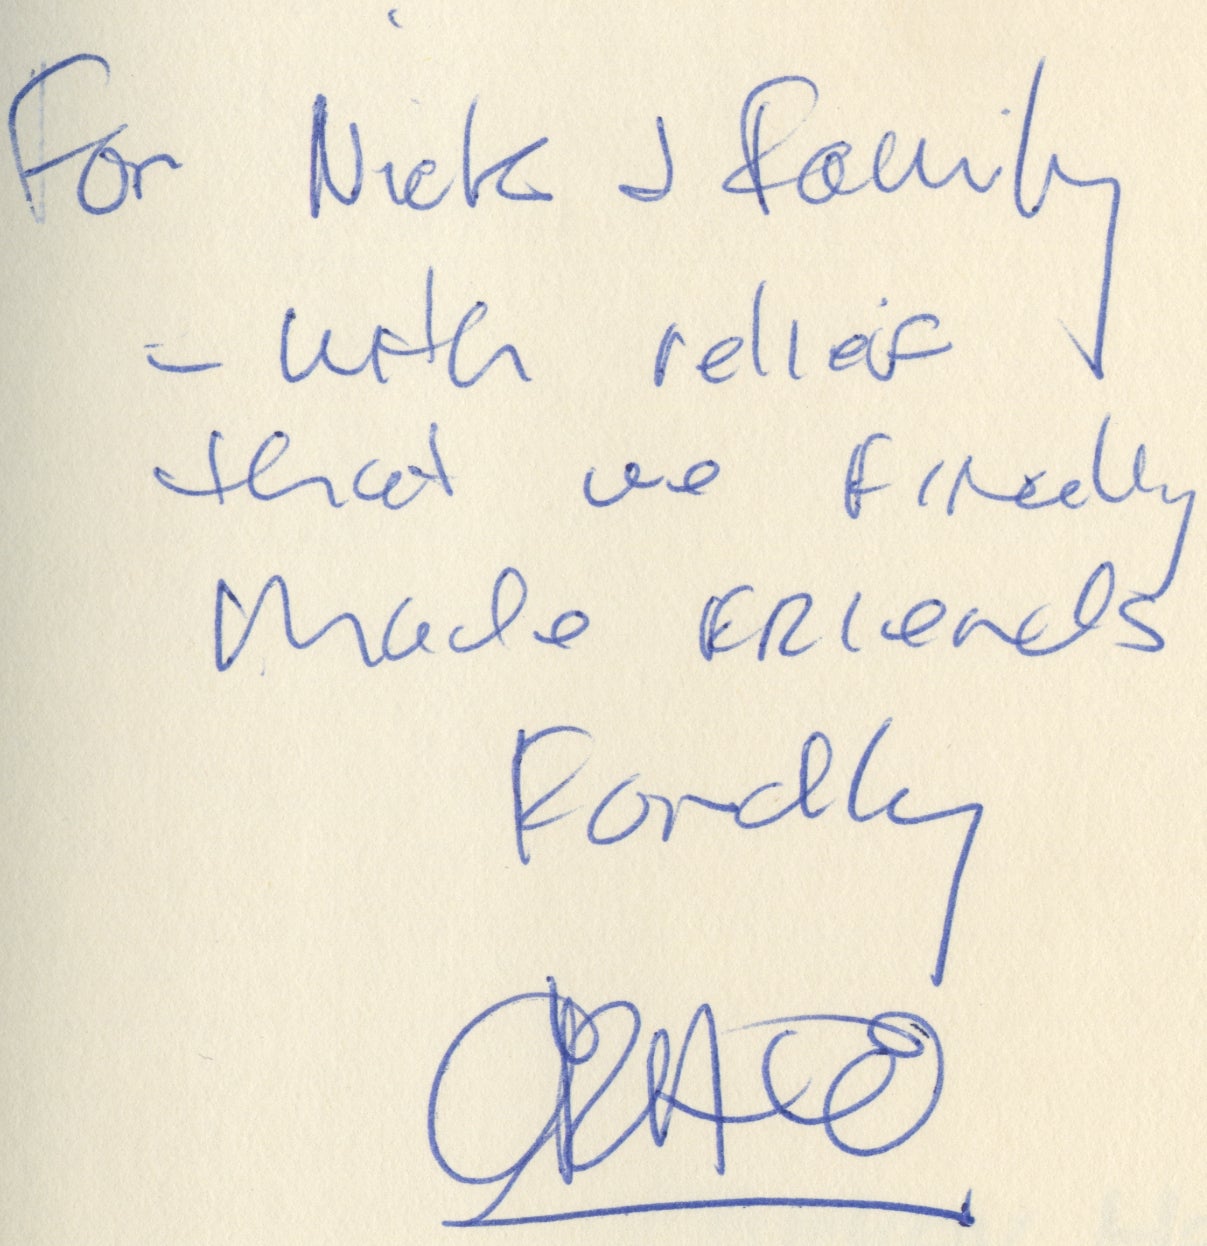 For Nick & Family
- with relief
that we finally
made friends
Fondly